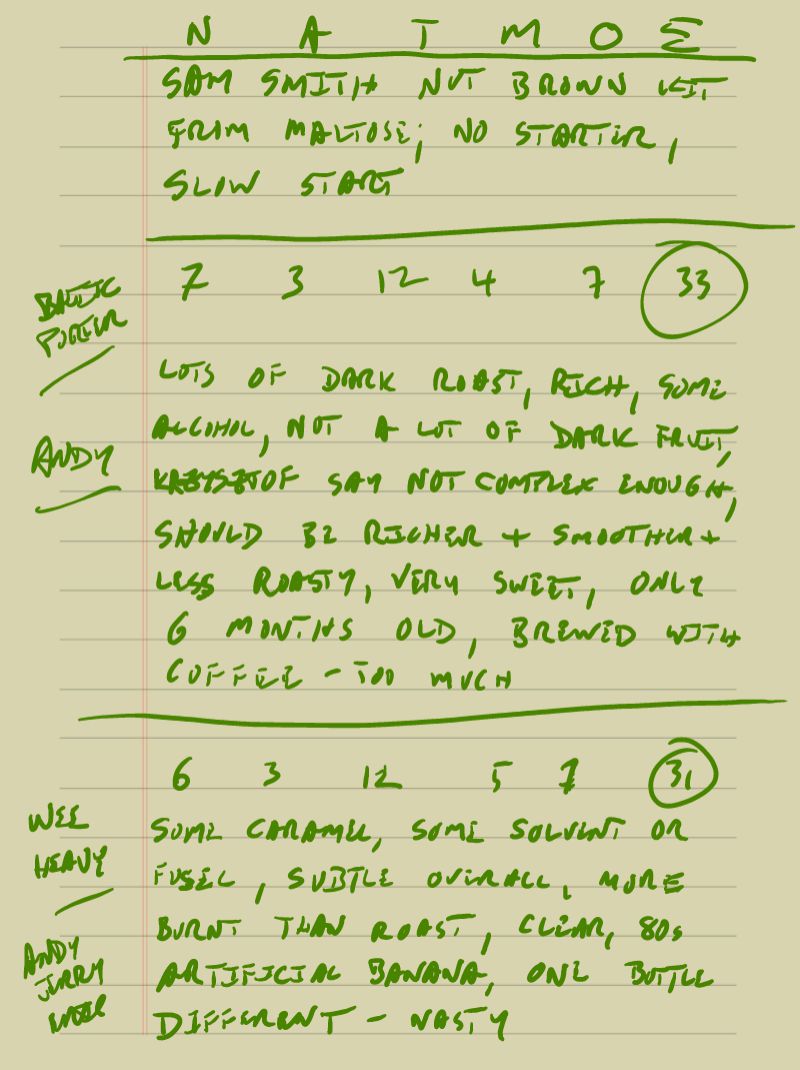 N A T M O E
SAM SMITH NUT BROWN KIT
FROM MALTOSE; NO STARTER,
SLOW START
7 3 12 4 7 33
BALTIC
PORTER
LOTS OF DARK ROAST, RICH, SOME
ALCOHOL, NOT A LOT OF DARK FRUIT,
ANDY
KRZYSZTOF SAY NOT COMPLEX ENOUGH,
SHOULD BE RICHER + SMOOTHER +
LESS ROASTY, VERY SWEET, ONLY
6 MONTHS OLD, BREWED WITH
COFFEE - TOO MUCH
6 3 12 5 7 31
WEE
HEAVY
SOME CARAMEL, SOME SOLVENT OR
FUSEL, SUBTLE OVERALL, MORE
BURNT THAN ROAST, CLEAR, 80s
ANDY
JERRY
ARTIFICIAL BANANA, ONE BOTTLE
DIFFERENT - NASTY